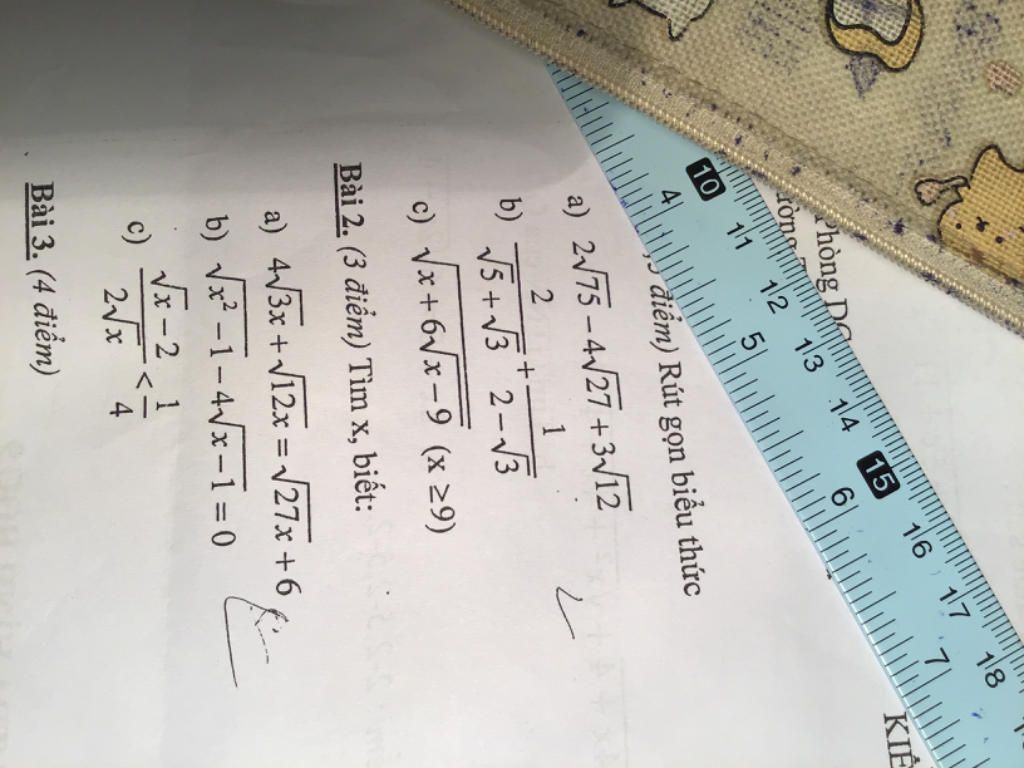 Phòng
KIỂ
điểm) Rút gọn biểu thức
a) 2√75 − 4√27 + 3√12
b) 2/(√5 + √3) + 1/(2 − √3)
c) √(x + 6√(x − 9)) (x ≥ 9)
Bài 2. (3 điểm) Tìm x, biết:
a) 4√3x + √12x = √27x + 6
b) √(x² − 1) − 4√(x − 1) = 0
c) (√x − 2)/(2√x) < 1/4
Bài 3. (4 điểm)
10 11 12 13 14 15 16 17 18
4 5 6 7